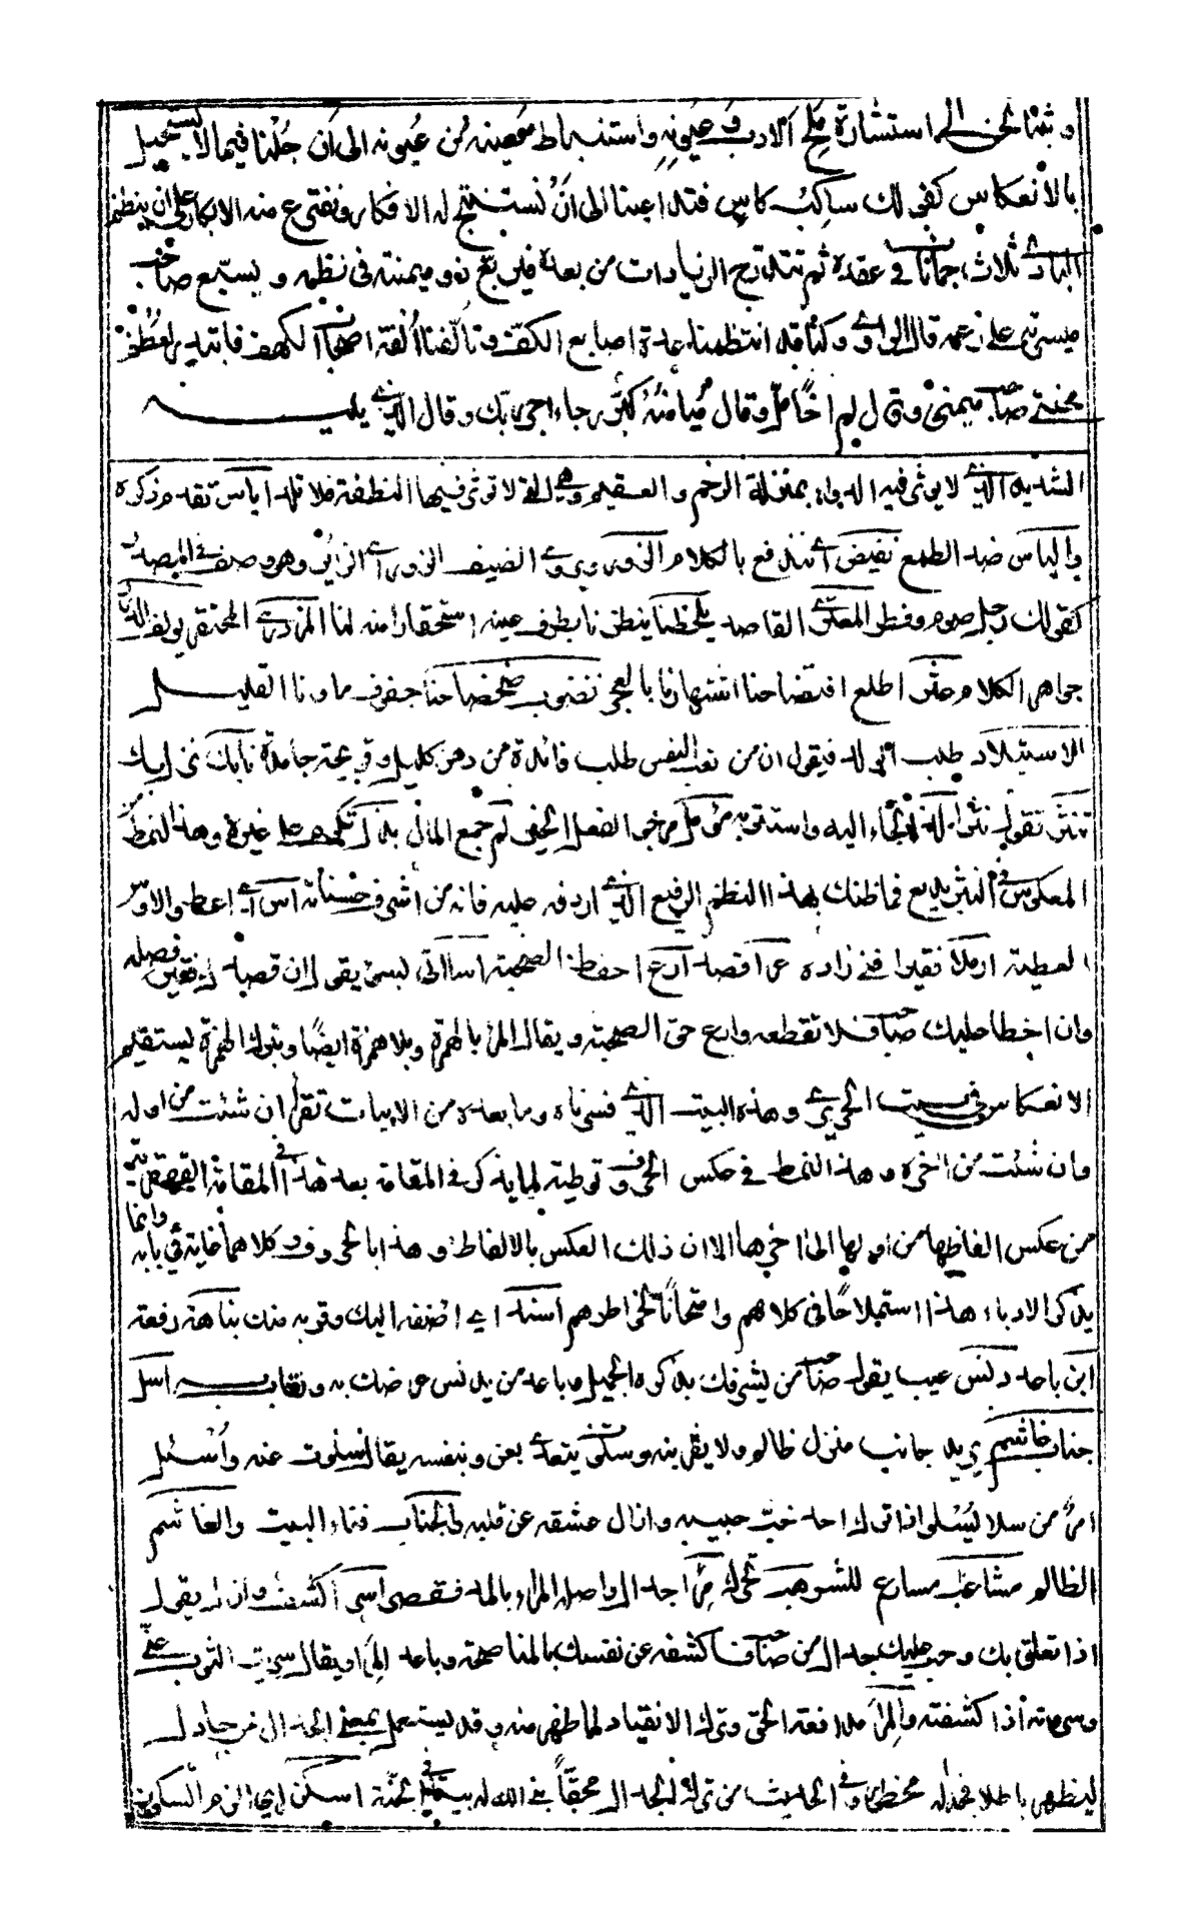 وثبنا نحن الى استشارة ملح الادب وعيونه واستنباط معينه من عيونه الى ان جلنا فيما لا يستحيل
بالانعكاس كقولك ساكب كاس فتداعينا الى ان نستنتج له الافكار ونفترع منه الابكار على ان ينظم
البادئ ثلاث جمانات في عقده ثم تتدرج الزيادات من بعده فيربع ذو ميمنته في نظمه ويسبع صاحب
ميسرته على رغمه قال الراوي وكنا قد انتظمنا عدة اصابع الكف وتألفنا ألفة اصحاب الكهف فابتدر لعظم
محنتي صاحب ميمنتي وقال لم اخا مل وقال ميامنه كبر رجاء اجر ربك وقال الذي يليه
الشديد الذي لا يوثر فيه الدواء بمنزلة الرخم والعقيم وهي التي لا توثر فيها النطفة فلا تلد اياس تقدم ذكره
والياس ضد الطمع نفيض أي نندفع بالكلام الزور وي الضيف الزور أي الزائر وهو وصف في المصدر
كقولك رجل صوم وفطر المعتري القاصد يلحظنا ينظرنا بطرف عينه استحقارا منه لنا المزدري المحتقر يولف الدرر
جواهر الكلام حتى اطلع افتضاحنا اشتهارنا بالعجز نضوب ضحضاحنا جفوف ماءنا القليل
الاستيلاد طلب الولد فيقول ان من تعب النفس طلب فائدة من ذهن كليل وقريحة جامدة نابك نزل بك
تنثر تقول نثرا لذ التجاء اليه واستتر به مرمل مرخي الفعل الخفي لم جمع المال بذل تكرم على غيره وهذا النمط
المعكوس في النثر بديع فما ظنك بهذا النظم الرفيع الذي اردفه عليه فانه من اشرف حسناته آس أي اعط والاوس
العطية ارملا فقيرا فني زاده عرا قصد ارع احفظ الصحبة اسا أتى بسوء يقول ان قصدك فقير فصله
وان اخطا عليك صاحب فلا تقطعه وارع حق الصحبة ويقال المرأ بالهمزة وبلا همزة ايضا وبترك الهمزة يستقيم
الانعكاس في بيت الحريري وهذه البيت الذي فسرناه وما بعده من الابيات تقرا ان شئت من اوله
وان شئت من اخره وهذا النمط في عكس الحروف توطية لما يذكر في المقامة بعد هذا في المقامة القهقرية
من عكس الفاظها من اولها الى اخرها الا ان ذلك العكس بالالفاظ وهذا بالحروف وكلاهما غاية في بابه وانما
يذكر الادباء هذا استملاحا في كلامهم وامتحانا لخواطرهم اسند اي اضفه اليك وقربه منك نباهة رفعة
ابن باعد دنس عيب يقول صاحب من يشرفك بذكره الجميل وباعد من يدنس عرضك به ونقابه اسل
جناب غاشم يريد جانب منزل ظالم ولا يقربنه وسكن يتعدى بعن وبنفسه يقال سلوت عنه وأسل
امر من سلا يسلو اذا ترك احد حب حبيبه وازال عشقه عن قلبه والجناب فناء البيت والغاشم
الظالم مشاغب مسارع للشر هب تحرك مرا جدال واصله المراء بالمد فقصر اسر أكشف وازل يقول
اذا تعلق بك وحب عليك جدال من صاحب فاكشفه عن نفسك بالمناصحة وباعد المرا ويقال سريت الثوب عني
وسروته اذا كشفته والمرأ مدافعة الحق وترك الانقياد لما ظهر منه وقد يستعمل بمعنى الجدال من جادل
ليظهر باطلا فجداله محظور وفي الحديث من ترك الجدال محقا بنى الله له بيتا في الجنة اسكن اي الزم السكون